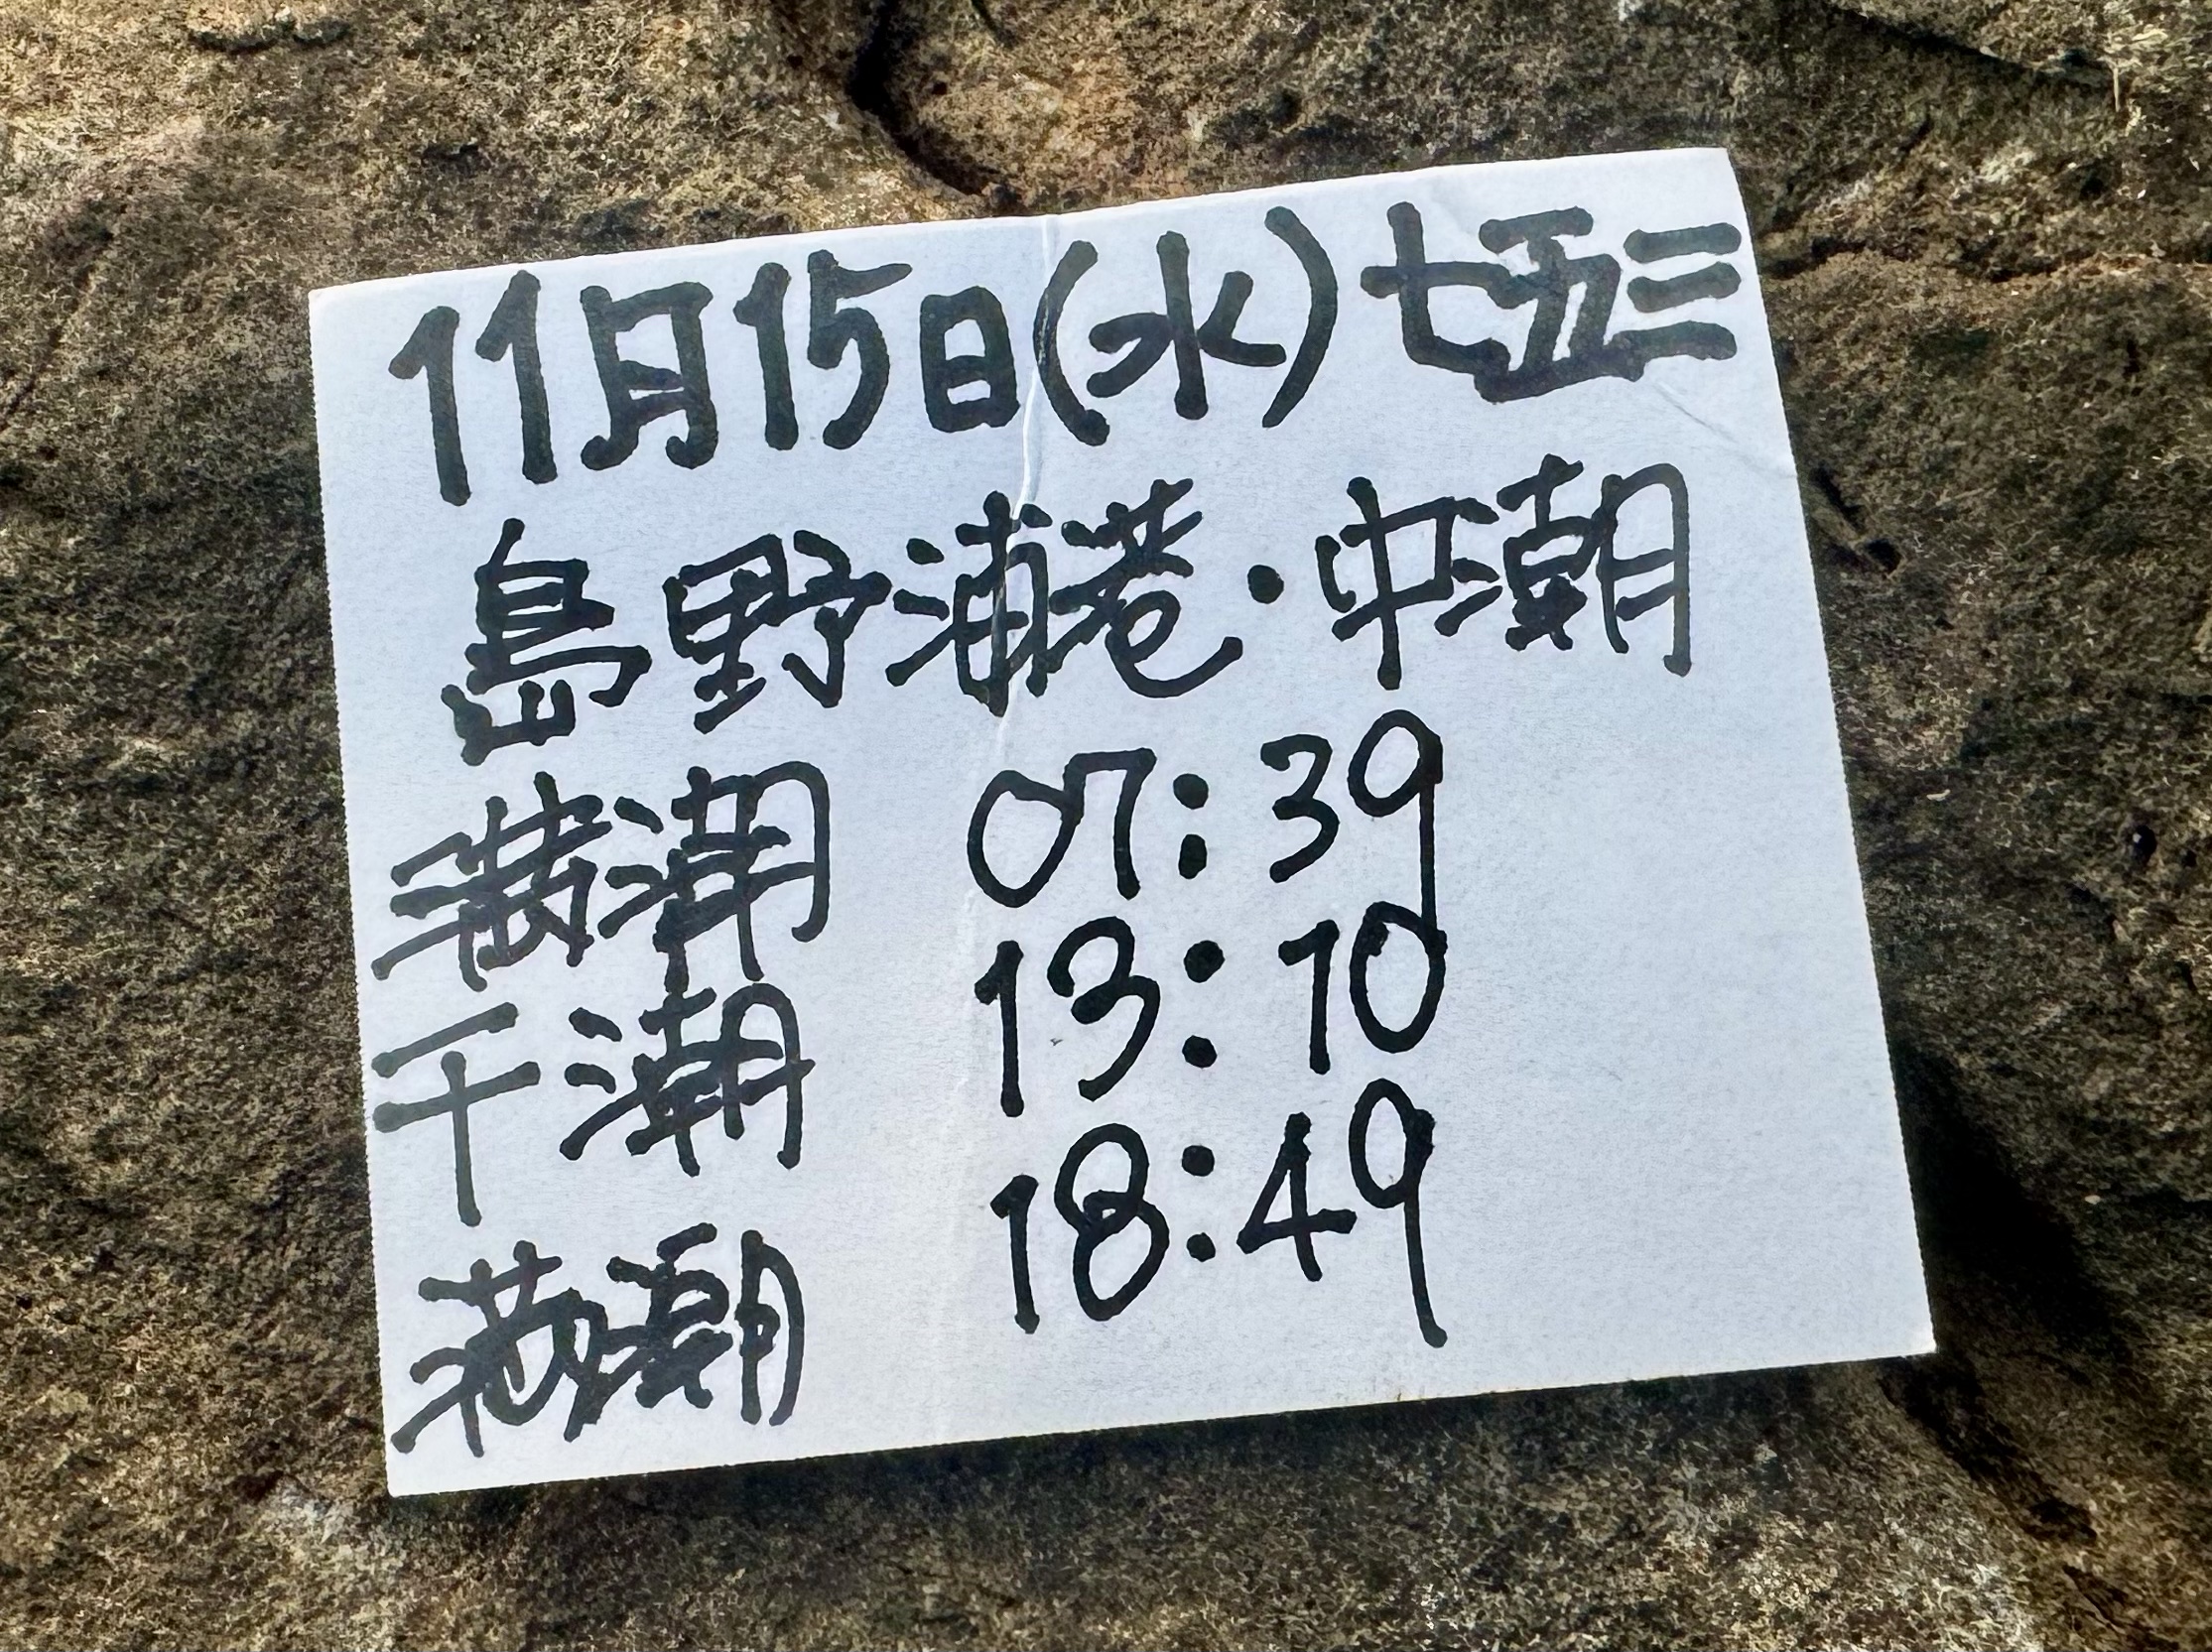 11月15日(水)七五三
島野浦港・中潮
満潮 07:39
干潮 13:10
満潮 18:49